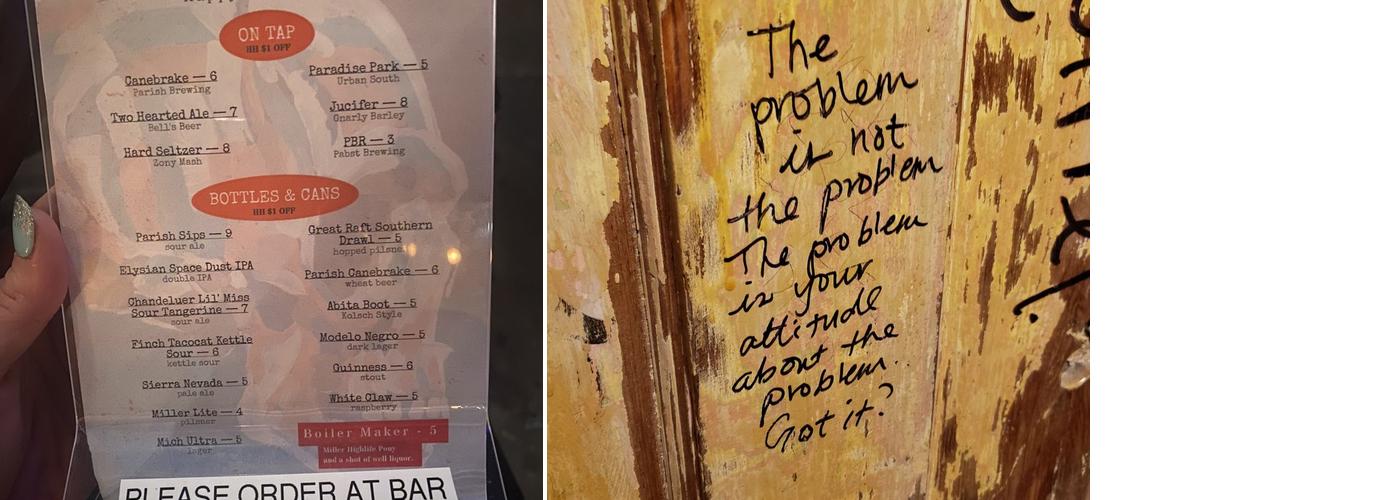 ON TAP
HH $1 OFF
Canebrake — 6
Parish Brewing
Two Hearted Ale — 7
Bell's Beer
Hard Seltzer — 8
Zony Mash
Paradise Park — 5
Urban South
Jucifer — 8
Gnarly Barley
PBR — 3
Pabst Brewing
BOTTLES & CANS
HH $1 OFF
Parish Sips — 9
sour ale
Elysian Space Dust IPA
double IPA
Chandeluer Lil' Miss
Sour Tangerine — 7
sour ale
Finch Tacocat Kettle
Sour — 6
kettle sour
Sierra Nevada — 5
pale ale
Miller Lite — 4
pilsner
Mich Ultra — 5
lager
Great Raft Southern
Drawl — 5
hopped pilsner
Parish Canebrake — 6
wheat beer
Abita Boot — 5
Kolsch Style
Modelo Negro — 5
dark lager
Guinness — 6
stout
White Claw — 5
raspberry
Boiler Maker - 5
Miller Highlife Pony
and a shot of well liquor.
PLEASE ORDER AT BAR
The
problem
is not
the problem
The problem
is your
attitude
about the
problem.
Got it?